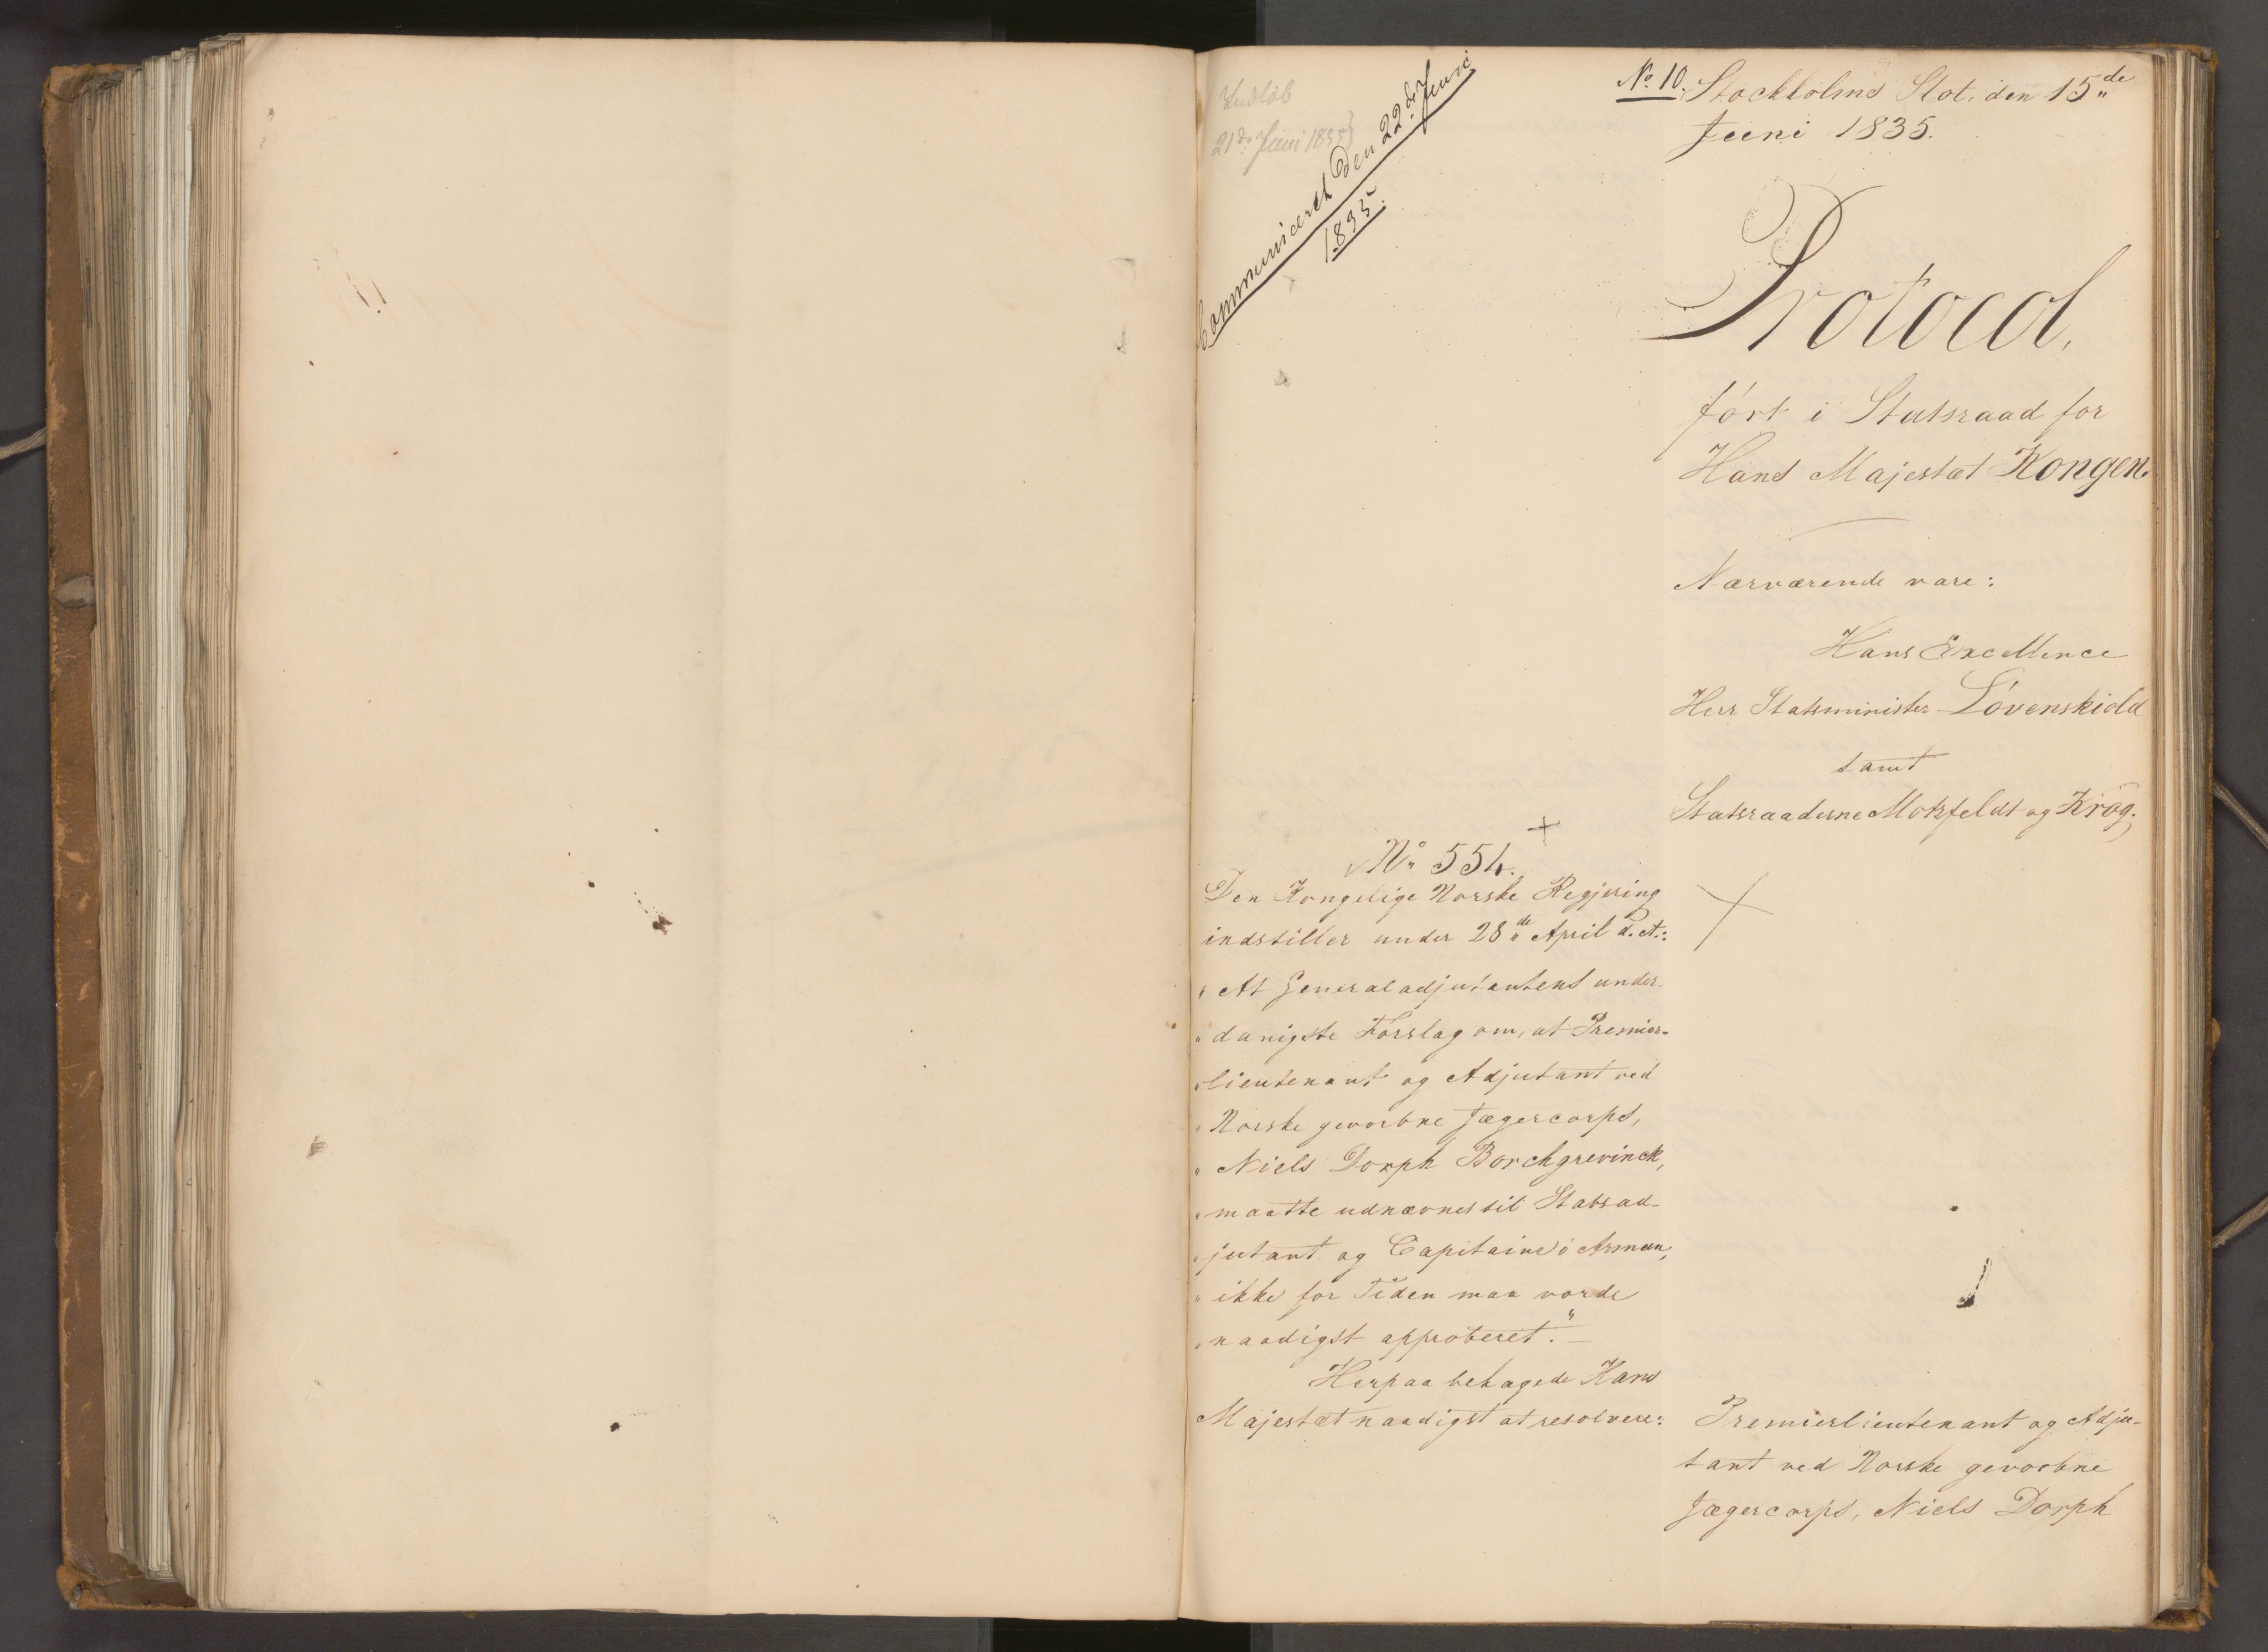 Indløb
21de Juni 1835
Communiceret den 22de Juni
1835.
No. 10. Stockholms Slot, den 15de
Juni 1835.
Protocol,
ført i Statsraad for
Hans Majestæt Kongen.
Nærværende vare:
Hans Excellence
Herr Statsminister Løvenskiold
samt
Statsraaderne Motzfeldt og Krog.
No 554.
Den Kongelige Norske Regjering
indstiller under 28de April d. A.:
" At Generaladjutantens under-
" danigste Forslag om, at Premier-
" lieutenant og Adjutant ved
" Norske gevorbne Jægercorps,
" Niels Dorph Borchgrevinck,
" maatte udnævnes til Stabsad-
" jutant og Capitaine i Armeen,
" ikke for Tiden maa vorde
" naadigst approberet." —
Herpaa behagede Hans
Majestæt naadigst at resolvere:
Premierlieutenant og Adju-
tant ved Norske gevorbne
Jægercorps, Niels Dorph